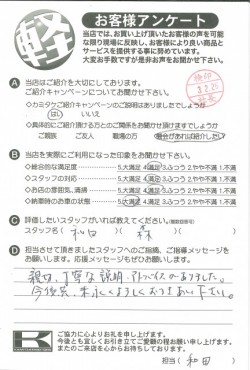 軽
お客様アンケート
当店では、お買い上げ頂いたお客様の声を可能
な限り現場に反映し、お客様により良い商品と
サービスを提供する事に努めています。
大変お手数ですが是非お声をお聞かせ下さい。
A 当店はご紹介を大切にしております。
ご紹介キャンペーンについてお聞かせ下さい
検印
3.2.25
◇カミタケご紹介キャンペーンのご説明はありましたでしょうか
はい いいえ
◇具体的にご紹介頂ける方とのご関係をお聞かせ頂けますでしょうか
ご親族 ご友人 職場の方 機会があれば紹介したい
B 当店を実際にご利用になった印象をお聞かせ下さい。
◇総合的な満足度 5.大満足 4.満足 3.ふつう 2.やや不満 1.不満
◇スタッフの対応 5.大満足 4.満足 3.ふつう 2.やや不満 1.不満
◇お店の雰囲気、清掃 5.大満足 4.満足 3.ふつう 2.やや不満 1.不満
◇納車時のお車の状態 5.大満足 4.満足 3.ふつう 2.やや不満 1.不満
C 評価したいスタッフがいれば教えてください。(複数回答可)
スタッフ名( 和田 森 )
D 担当させて頂きましたスタッフへのご指摘、ご指導メッセージを
お願いします。応援メッセージもぜひお願いします。
親切、丁寧な説明・アドバイスがありました。
今後共、末永くよろしくおつきあい下さい。
K
ご協力に心よりお礼を申し上げます。
今後とも宜しくお引き立てご愛顧の程お願い申し上げます。
またのご来店を心からお待ちしております。
担当( 和田 )